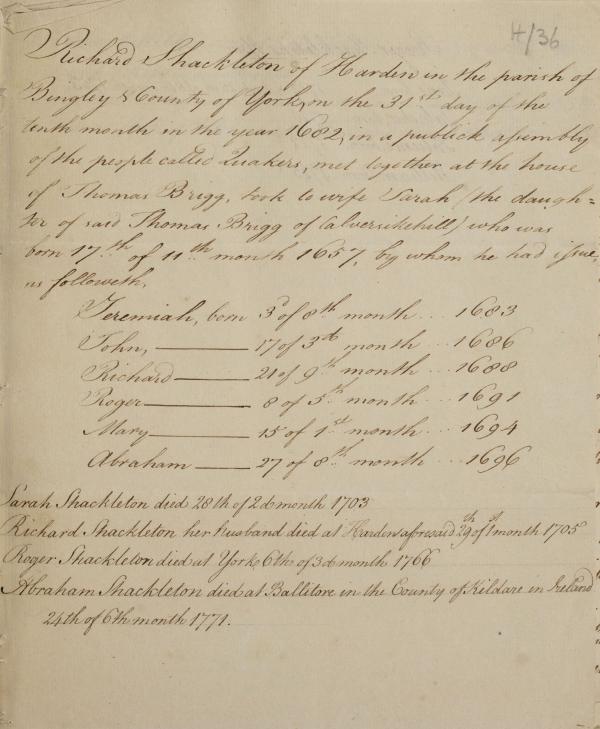 H/36
Richard Shackleton of Harden in the parish of
Bingley & County of York, on the 31st day of the
tenth month in the year 1682, in a publick assembly
of the people called Quakers, met together at the house
of Thomas Brigg, took to wife Sarah (the daugh=
ter of said Thomas Brigg of Calversikehill) who was
born 17th of 11th month 1657, by whom he had issue,
as followeth,
Jeremiah, born 3d of 8th month ... 1683
John, —— 17 of 3d month ... 1686
Richard —— 21 of 9th month ... 1688
Roger —— 8 of 5th month ... 1691
Mary —— 15 of 1st month ... 1694
Abraham —— 27 of 8th month ... 1696
Sarah Shackleton died 28th of 2d month 1703
Richard Shackleton her husband died at Harden aforesaid 29th of 1st month 1705
Roger Shackleton died at York, 6th of 3d month 1766
Abraham Shackleton died at Ballitore in the County of Kildare in Ireland
24th of 6th month 1771.